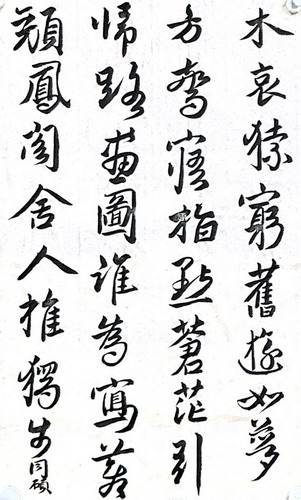 木哀猿窮舊遊如夢
方驚寤指點蒼茫引
歸路畫圖誰為寫
鳳閣舍人推獨步